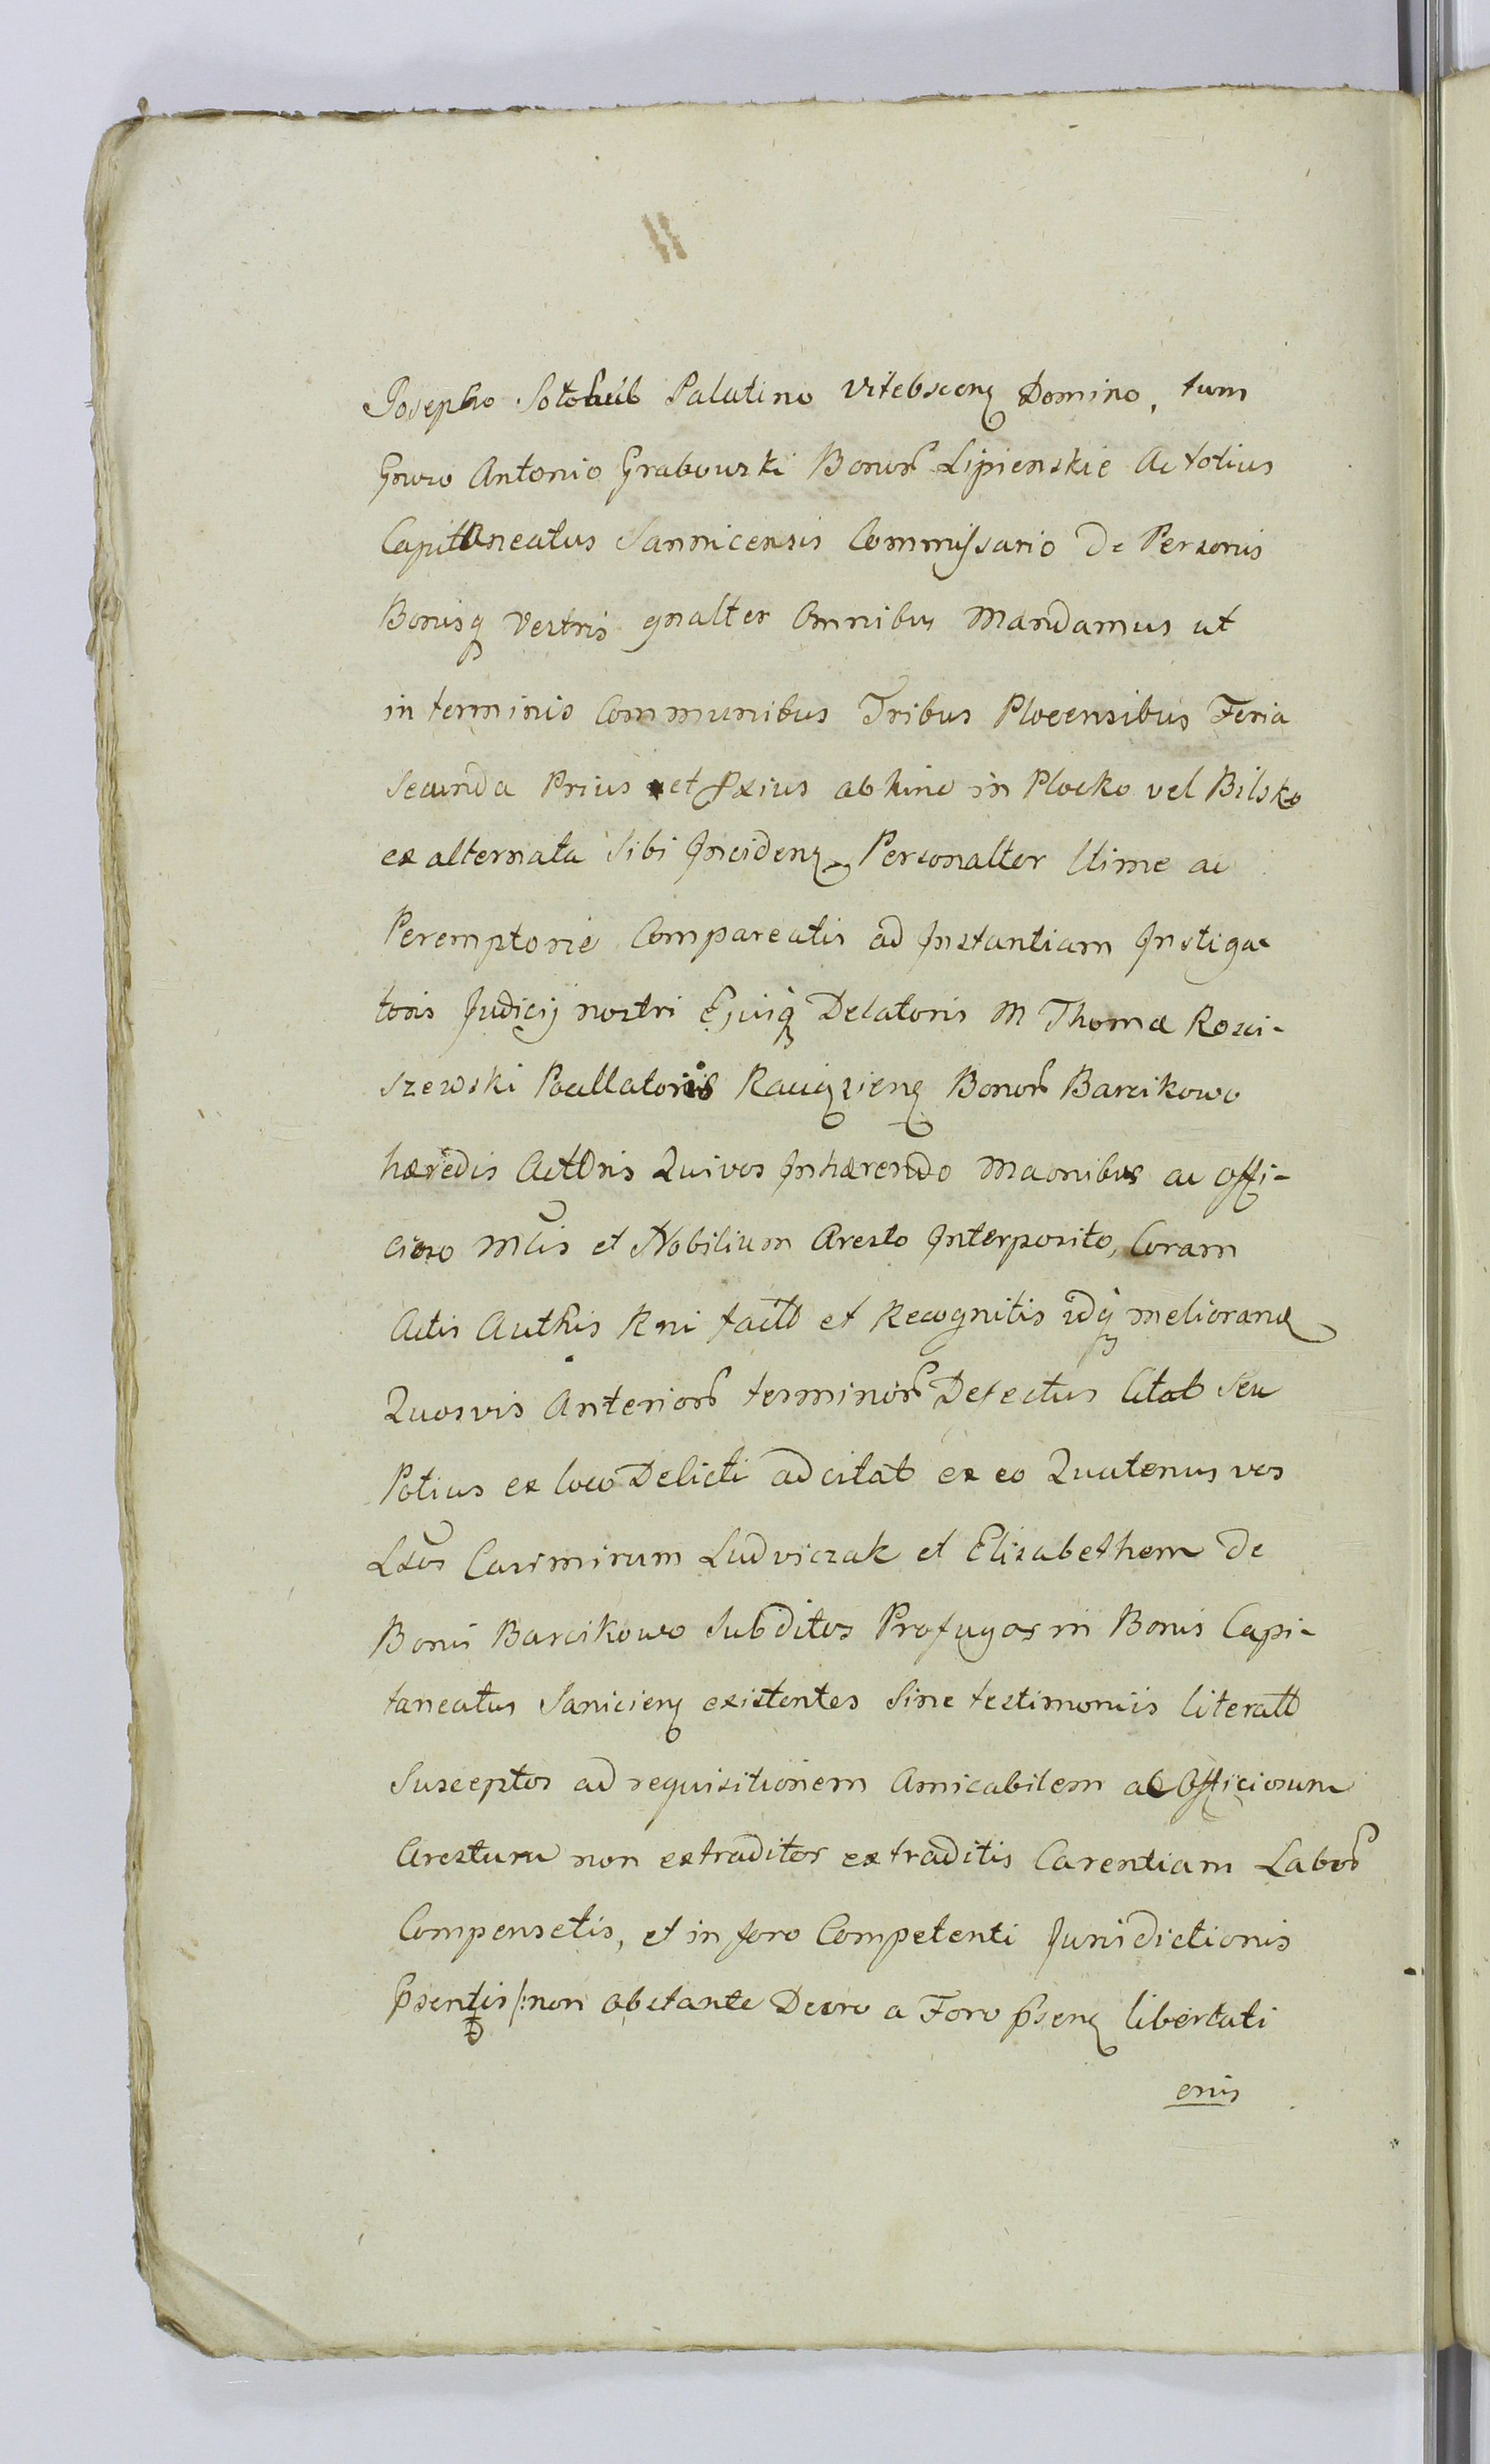 Josepho Sotohub Palatino Vitebscenӡ Domino, tum
Gnoso Antonio Grabowski Bonor̃ Lipienskie Ac totius
Capitaneatus Sannicensis Commissario De Personis
Bonisq Vestris gnalter Omnibus Mandamus ut
in terminis Communibus Tribus Plocensibus Feria
Secunda Prius et Pxius ab hinc in Plocko vel Bilsko
ex alternata Sibi Incidenӡ Personalter ltime ac
Peremptorie Compareatis ad Instantiam Instiga-
toris Judicij nostri Ejusq̃ Delatoris M Thomæ Rosci-
szewski Pocillatoris Raciąziensӡ Bonor̃ Barcikowo
hæredis Actoris Qui vos Inhærendo Maonibus ac offi-
cioso Mlis et Nobilium Aresto Interposito, Coram
Actis Authis Rni factô et Recognitis idq̃ meliorando
Quosvis Anterior̃ terminor̃ Defectus Citat Seu
Potius ex loco Delicti adcitat ex eo Quatenus vos
Lsos Casimirum Ludviczak et Elisabethem de
Bonis Barcikowo Subditos Profugos in Bonis Capi-
taneatus Sanicienӡ existentes Sine testimoniis literatô
Susceptos ad requisitionem Amicabilem ac Officiosum
Arestum non extraditos extraditis Carentiam Labor̃
Compensetis, et in foro Competenti Jurisdictionis
p̃sentis /: non obstante Decro a Foro p̃senӡ libertati
onis